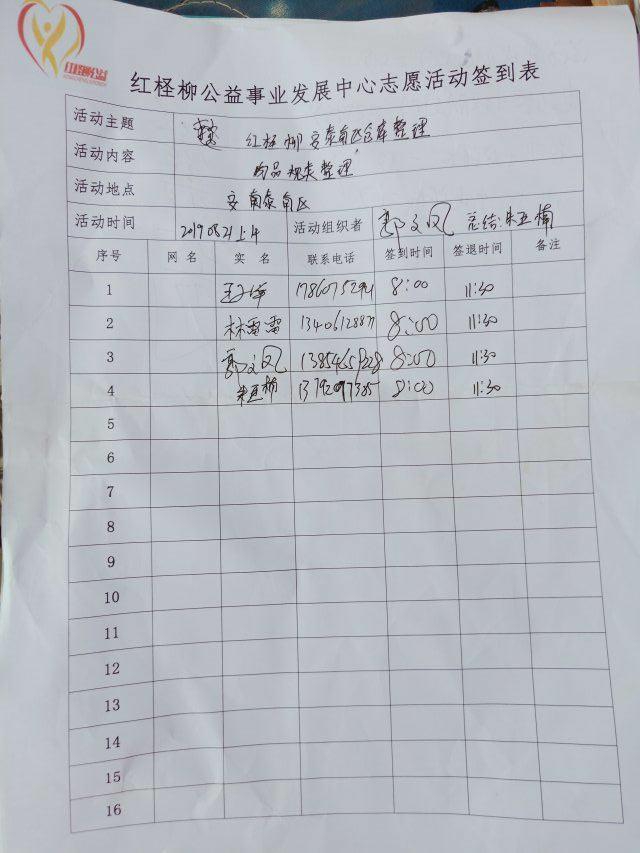 红柽柳公益
红柽柳公益事业发展中心志愿活动签到表
活动主题 红柽柳安泰南区仓库整理
活动内容 物品规类整理
活动地点 安泰南区
活动时间 2019 08 21 上午 活动组织者 郭文凤 总结:朱亚楠
序号 网 名 实 名 联系电话 签到时间 签退时间 备注
1 8:00 11:30
2 林雷雷 8:00 11:30
3 郭文凤 8:00 11:30
4 朱亚楠 13792097385 8:00 11:30
5
6
7
8
9
10
11
12
13
14
15
16